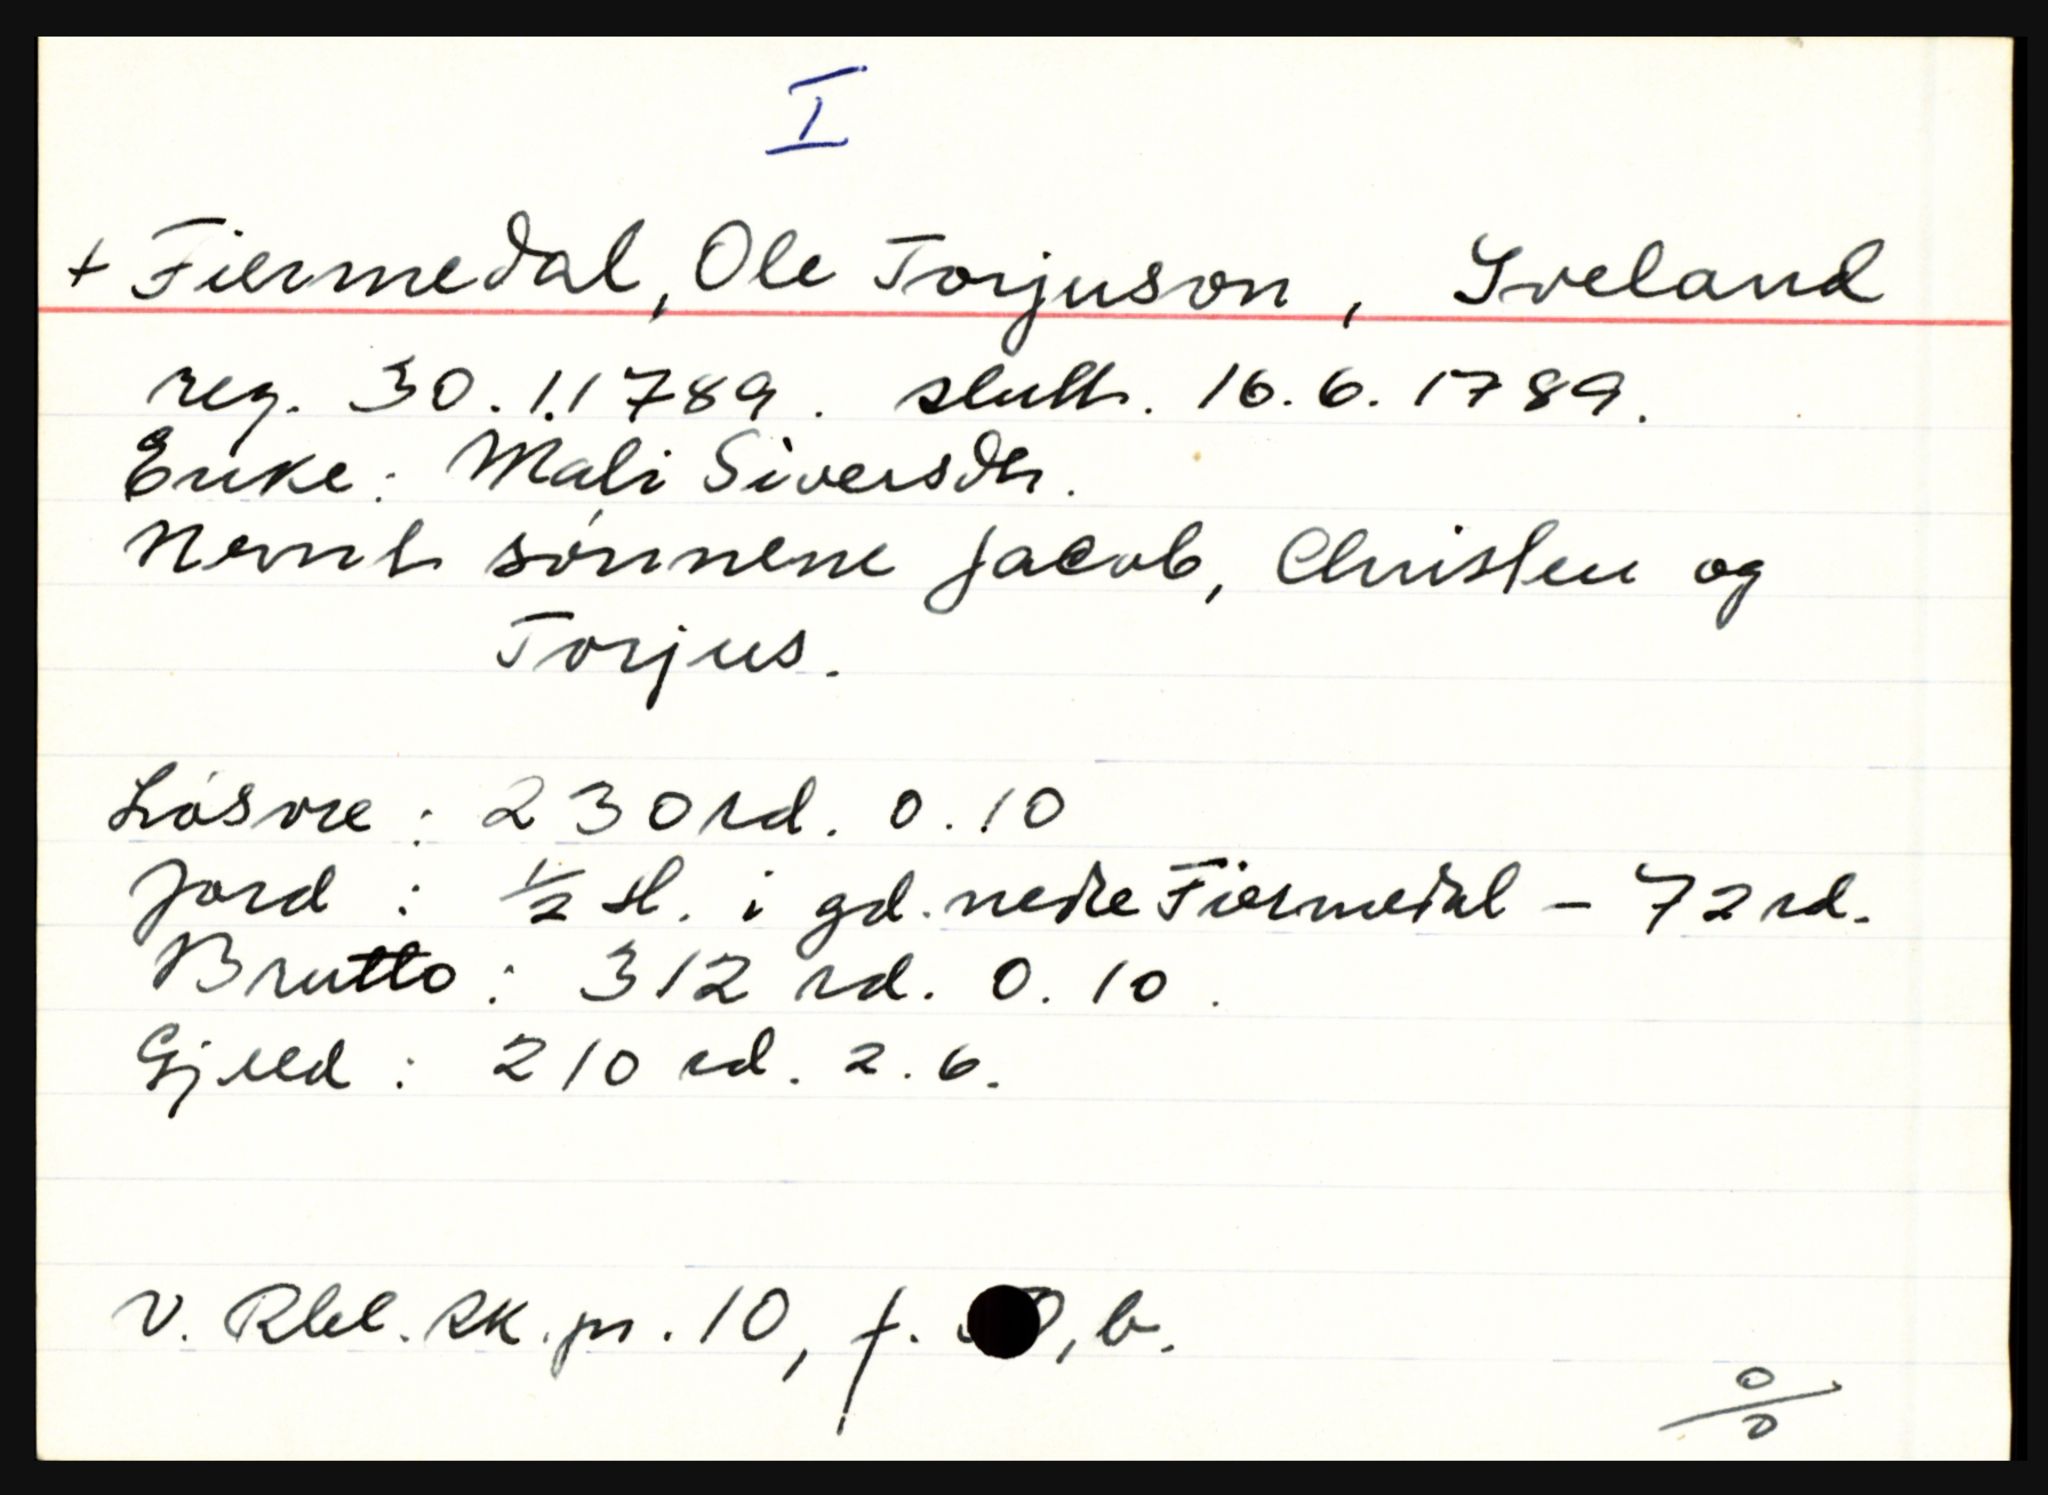 I
+ Fiermedal, Ole Torjuson, Iveland
reg. 30.1.1789. slutt. 16.6.1789.
Enke: Mali Siversdtr.
Nevnt sónnene Jacob, Christen og
Torjus.
Lósøre: 230 rd. 0.10
Jord: ½ hd. i gd. nedre Fiermedal - 72 rd.
Brutto: 312 rd. 0.10.
Gjeld: 210 rd. 2.6.
V. Rbl. sk. pr. 10, f. , b.
0/0